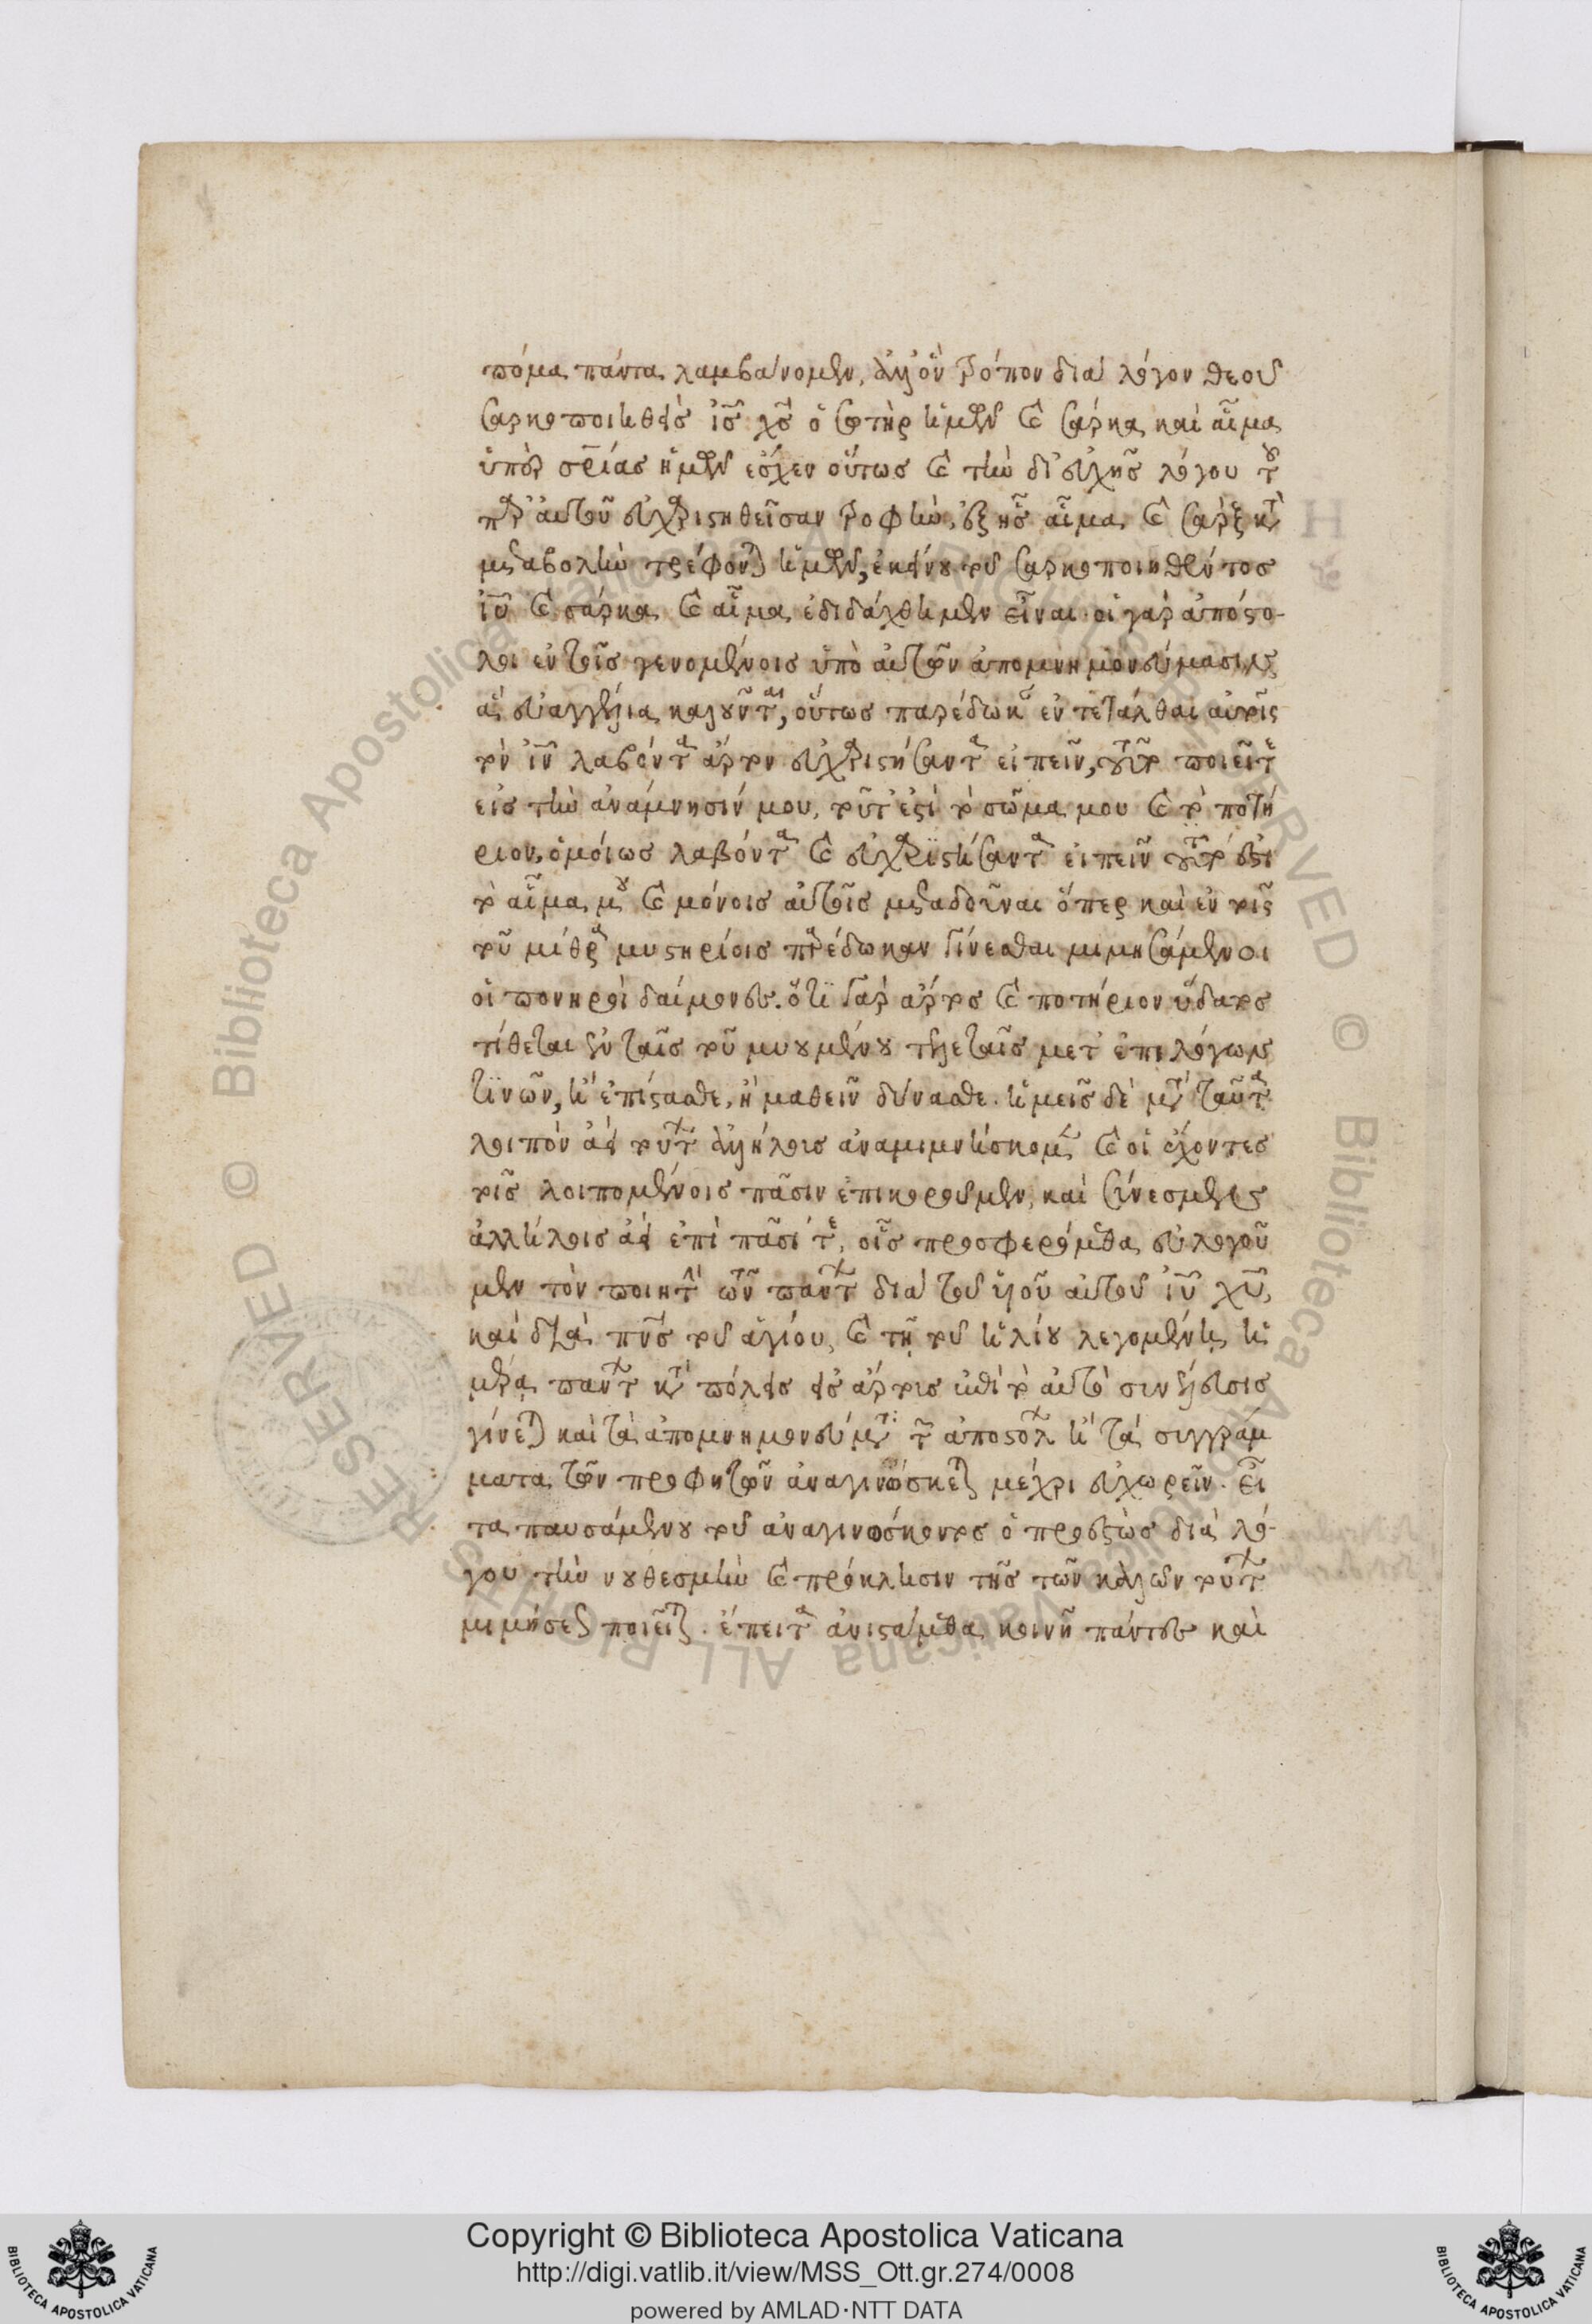 πόμα πάντα λαμβάνομεν, ἀλλ' ὃν τρόπον διὰ λόγου θεοῦ
σαρκοποιηθεὶς ἰς χς ὁ σωτὴρ ἡμῶν καὶ σάρκα καὶ αἷμα
ὑπὲρ σρίας ἡμῶν ἔσχεν οὕτως καὶ τὴν δι' εὐχῆς λόγου τοῦ
παρ' αὐτοῦ εὐχαριστηθεῖσαν τροφὴν, ἐξ ἧς αἷμα καὶ σάρξ κατὰ
μεταβολὴν τρέφονται ἡμῶν, ἐκείνου τοῦ σαρκοποιηθέντος
ἰυ καὶ σάρκα καὶ αἷμα ἐδιδάχθημεν εἶναι. οἱ γὰρ ἀπόστο-
λοι ἐν τοῖς γενομένοις ὑπὸ αὐτῶν ἀπομνημονεύμασιν
ἃ εὐαγγέλια καλοῦνται, οὕτως παρέδωκαν ἐντετάλθαι αὐτοῖς
τὸν ἰν λαβόντα ἄρτον εὐχαριστήσαντα εἰπεῖν, τοῦτο ποιεῖτε
εἰς τὴν ἀνάμνησίν μου, τοῦτ' ἐστὶ τὸ σῶμα μου καὶ τὸ ποτή
ριον ὁμοίως λαβόντα καὶ εὐχαριστήσαντα εἰπεῖν τοῦτο ἐστι
τὸ αἷμα μου καὶ μόνοις αὐτοῖς μεταδοῦναι ὅπερ καὶ ἐν τοῖς
τοῦ μίθρα μυστηρίοις παρέδωκαν γίνεσθαι μιμησάμενοι
οἱ πονηροὶ δαίμονες. ὅτι γὰρ ἄρτος καὶ ποτήριον ὕδατος
τίθεται ἐν ταῖς τοῦ μυουμένου τελεταῖς μετ' ἐπιλόγων
τινῶν, ἢ ἐπίστασθε, ἢ μαθεῖν δύνασθε. ἡμεῖς δὲ μετὰ ταῦτα
λοιπὸν ἀεὶ τούτων ἀλλήλοις ἀναμιμνήσκομεν καὶ οἱ ἔχοντες
τοῖς λοιπομένοις πᾶσιν ἐπικουροῦμεν, καὶ σύνεσμεν
ἀλλήλοις ἀεὶ ἐπὶ πᾶσί τε, οἷς προσφερόμεθα εὐλογοῦ
μεν τὸν ποιητὴν τῶν πάντων διὰ τοῦ υἱοῦ αὐτοῦ ἰυ χυ,
καὶ διὰ πνς τοῦ ἁγίου, καὶ τῇ τοῦ ἡλίου λεγομένῃ ἡ
μέρᾳ πάντων κατὰ πόλεις εἰς ἄγροις ἐπὶ τὸ αὐτὸ συνέλευσις
γίνεται καὶ τὰ ἀπομνημονεύματα τῶν ἀποστόλων ἢ τὰ συγγράμ
ματα τῶν προφητῶν ἀναγινώσκεται μέχρι εὐχωρεῖν. εἶ
τα παυσαμένου τοῦ ἀναγινώσκοντος ὁ προεστὼς διὰ λό-
γου τὴν νουθεσμὴν καὶ πρόκλησιν τῆς τῶν καλῶν τούτων
μιμήσεως ποιεῖται. ἔπειτα ἀνιστάμεθα κοινῇ πάντες καὶ
Copyright © Biblioteca Apostolica Vaticana
http://digi.vatlib.it/view/MSS_Ott.gr.274/0008
powered by AMLAD·NTT DATA